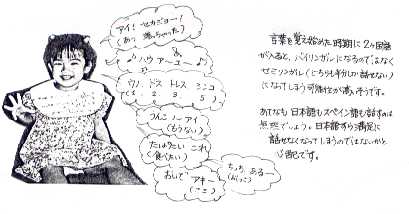 アイ! セカジョー!
(あっ 落っちゃった)
ハウ アーユー
ウノ ドス トレス シンコ
(1 2 3 5)
うんこ ノーアイ
(もうない)
たゅたい これ
(食べたい)
おいで アキー
(ここ)
ちっち あるー
(おしっこ)
言葉を覚え始めた時期に2ヶ国語
が入ると、バイリンガルになるのではなく
セミリンガル(どちらも半分しか話せない)
になってしまう可能性が高いそうです。
あてなも日本語もスペイン語も話すのは
無理でしょう。日本語すら満足に
話せなくなってしまうのではないかと
心配です。